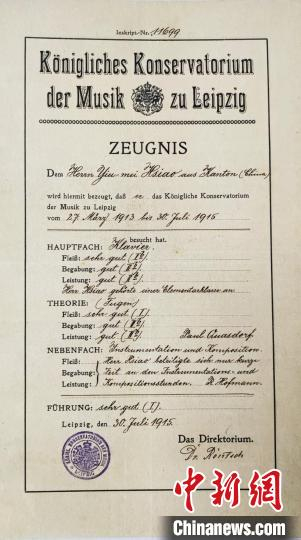 Inskript.-Nr. 11699
Königliches Konservatorium
der Musik zu Leipzig
ZEUGNIS
Dem Herrn Yiu mei Hsiao aus Kanton (China)
wird hiermit bezeugt, daß er das Königliche Konservatorium
der Musik zu Leipzig
vom 27. März 1913 bis 30. Juli 1915
besucht hat.
HAUPTFACH: Klavier.
Fleiß: sehr gut
Begabung: gut
Leistung: gut
Herr Hsiao gehörte einer Elementarklasse an
THEORIE: (Fugen)
Fleiß: sehr gut (I).
Begabung: gut
Leistung: gut
Paul Quasdorf
NEBENFACH: Instrumentation und Komposition
Fleiß: Herr Hsiao beteiligte sich nur kurze
Begabung: Zeit an den Instrumentations- und
Leistung: Kompositionsstunden. R. Hofmann.
FÜHRUNG: sehr gut (I).
Leipzig, den 30. Juli 1915.
Das Direktorium.
Dr. Röntsch
中新网
Chinanews.com